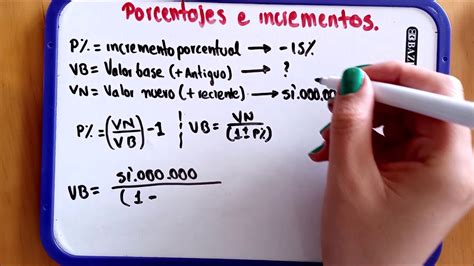 Porcentajes e incrementos.
P% = incremento porcentual → -15%
VB = Valor base (+Antiguo) → ?
VN = Valor nuevo (+reciente) → 51.000.00
P% = (VN/VB) - 1 | VB = VN/(1±P%)
VB = 51.000.000
(1 -